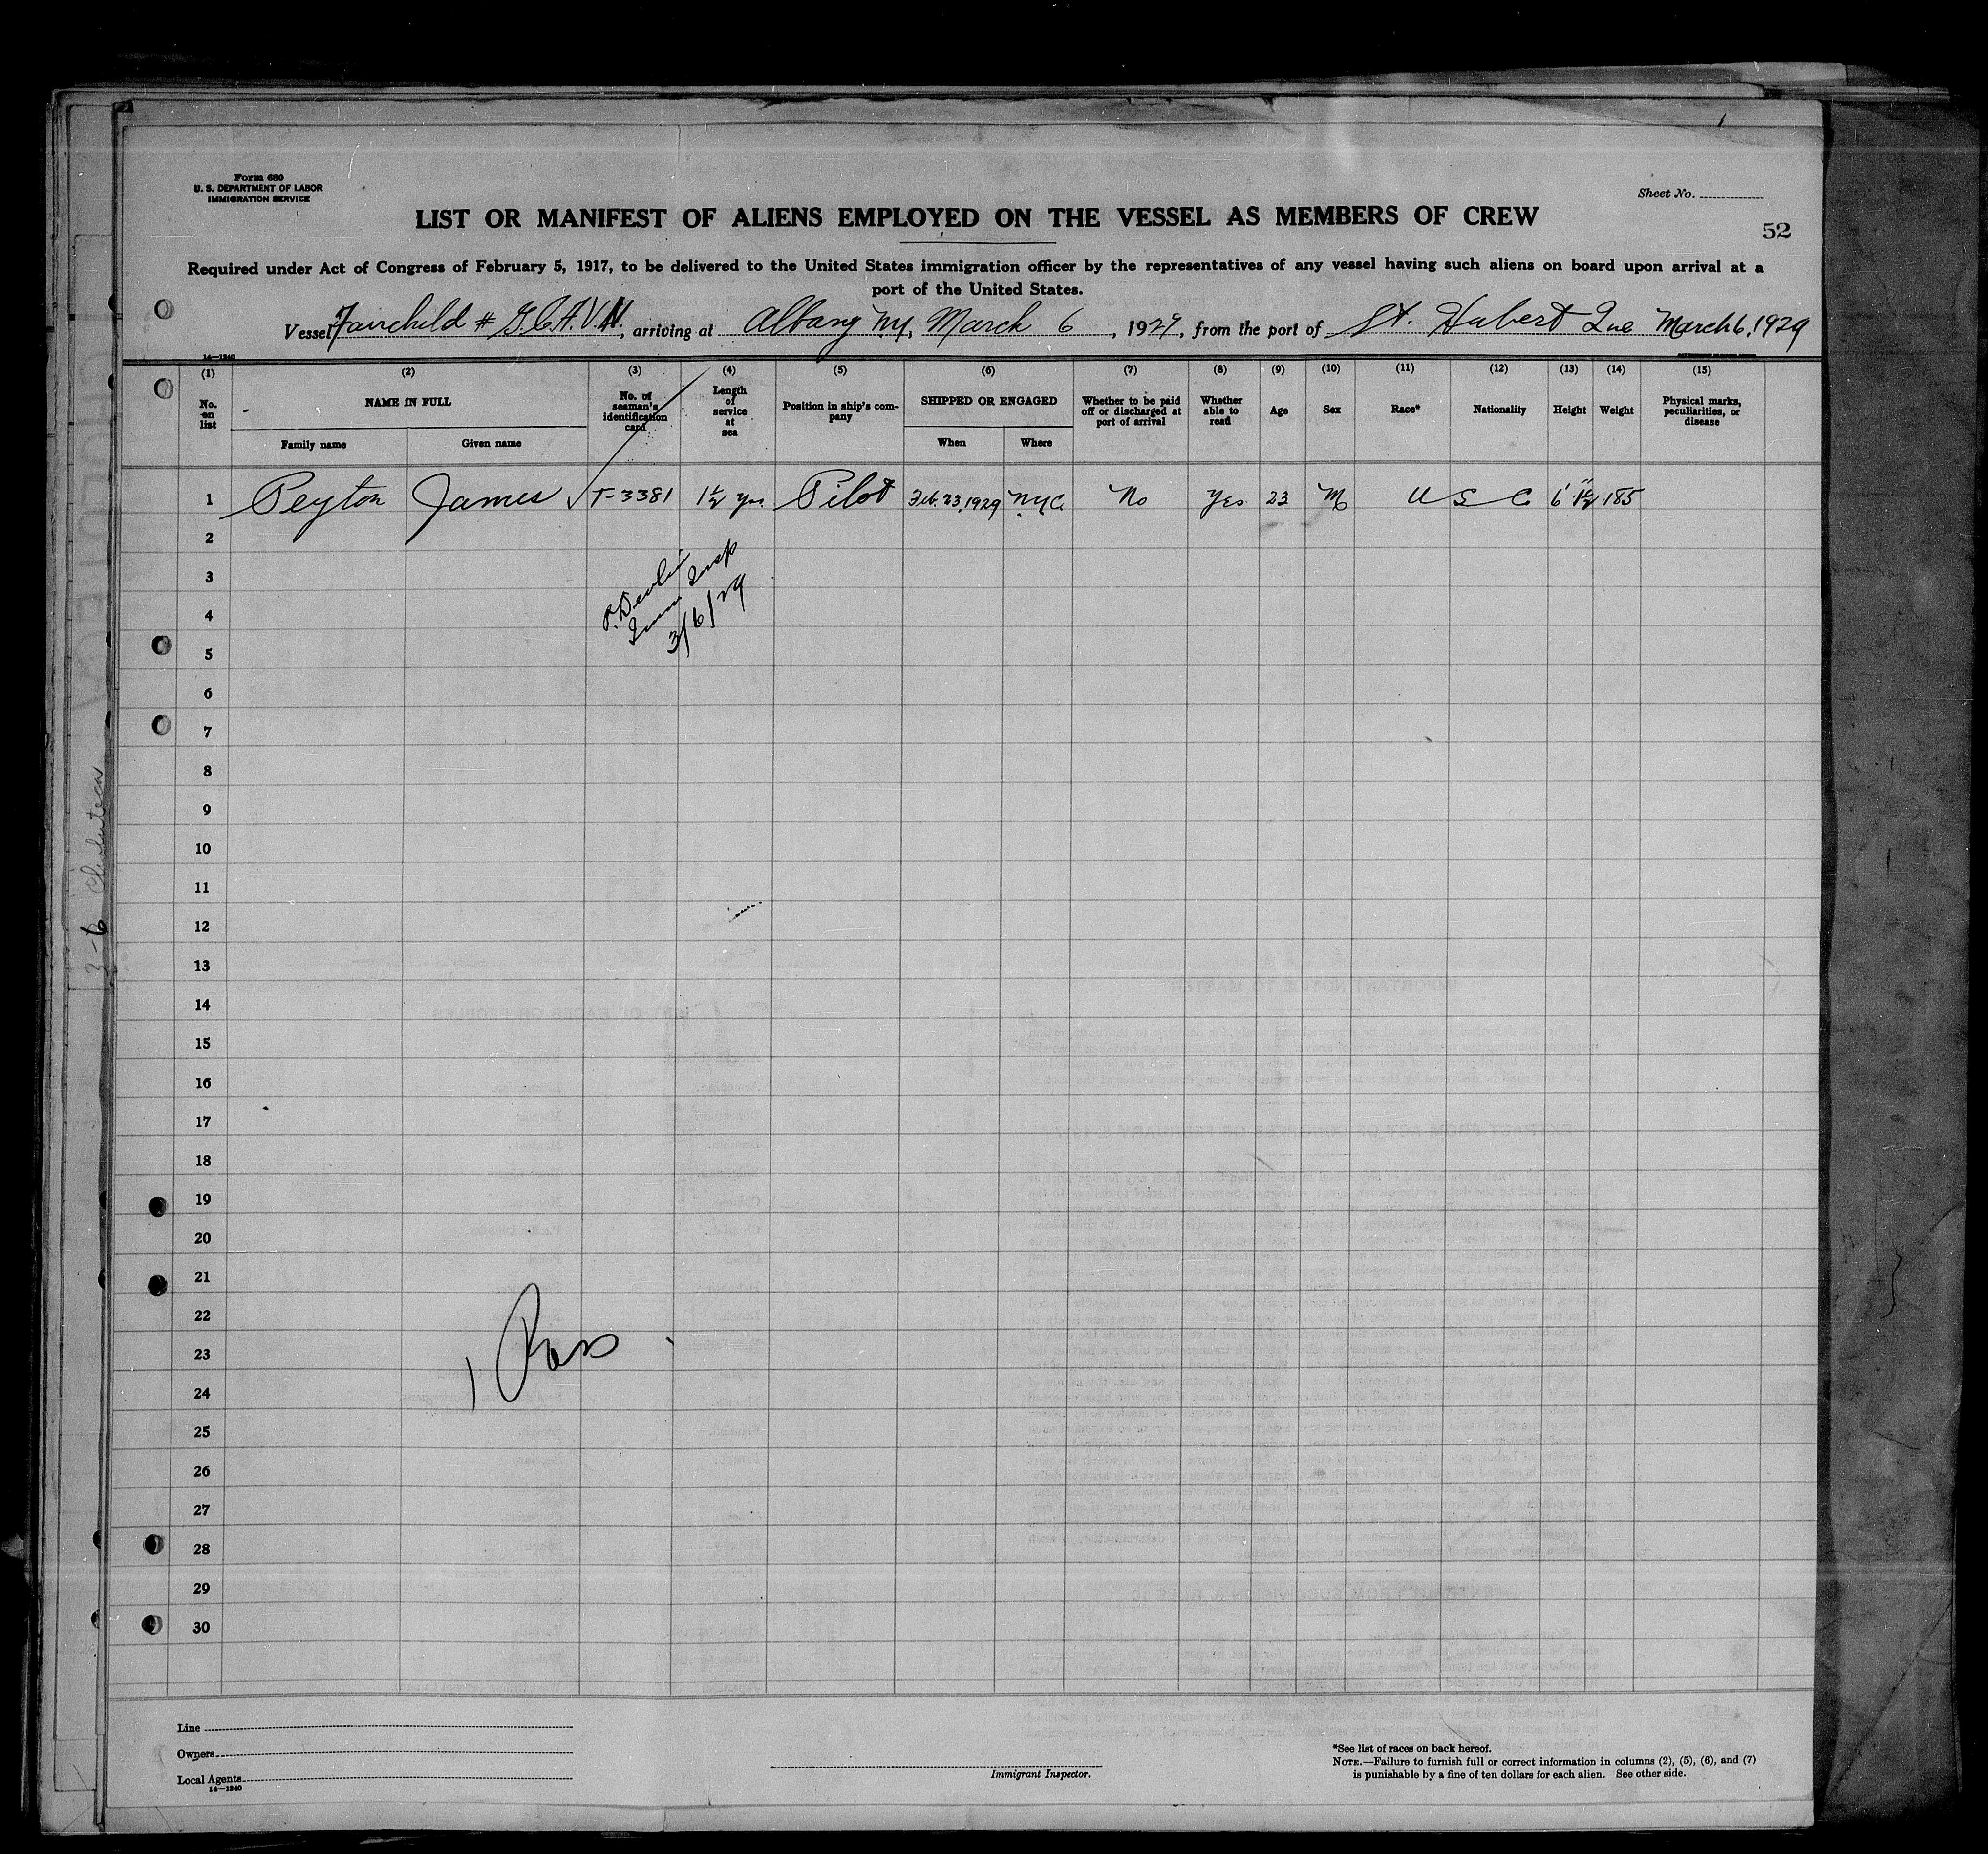 Form 680
U. S. DEPARTMENT OF LABOR
IMMIGRATION SERVICE
Sheet No.
LIST OR MANIFEST OF ALIENS EMPLOYED ON THE VESSEL AS MEMBERS OF CREW
52
Required under Act of Congress of February 5, 1917, to be delivered to the United States immigration officer by the representatives of any vessel having such aliens on board upon arrival at a
port of the United States.
Vessel Fairchild # G.C.A.V.N., arriving at Albany N.Y., March 6, 1929, from the port of St. Hubert Que March 6, 1929
14—1240
(1) (2) (3) (4) (5) (6) (7) (8) (9) (10) (11) (12) (13) (14) (15)
No. on list
NAME IN FULL
Family name
Given name
No. of seaman's identification card
Length of service at sea
Position in ship's company
SHIPPED OR ENGAGED
When
Where
Whether to be paid off or discharged at port of arrival
Whether able to read
Age
Sex
Race*
Nationality
Height
Weight
Physical marks, peculiarities, or disease
1 Peyton James √ T-3381 1½ yr. Pilot Feb. 23, 1929 N.Y.C. No Yes 23 M U S C 6' 1½" 185
2
P. Devlin
3
Imm Insp
4
3/6/29
5
6
7
8
9
10
11
12
13
14
15
16
17
18
19
20
21
22
23
1 Pass
24
25
26
27
28
29
30
3-6
Line
Owners
Local Agents
14—1240
Immigrant Inspector.
*See list of races on back hereof.
NOTE.—Failure to furnish full or correct information in columns (2), (5), (6), and (7)
is punishable by a fine of ten dollars for each alien. See other side.